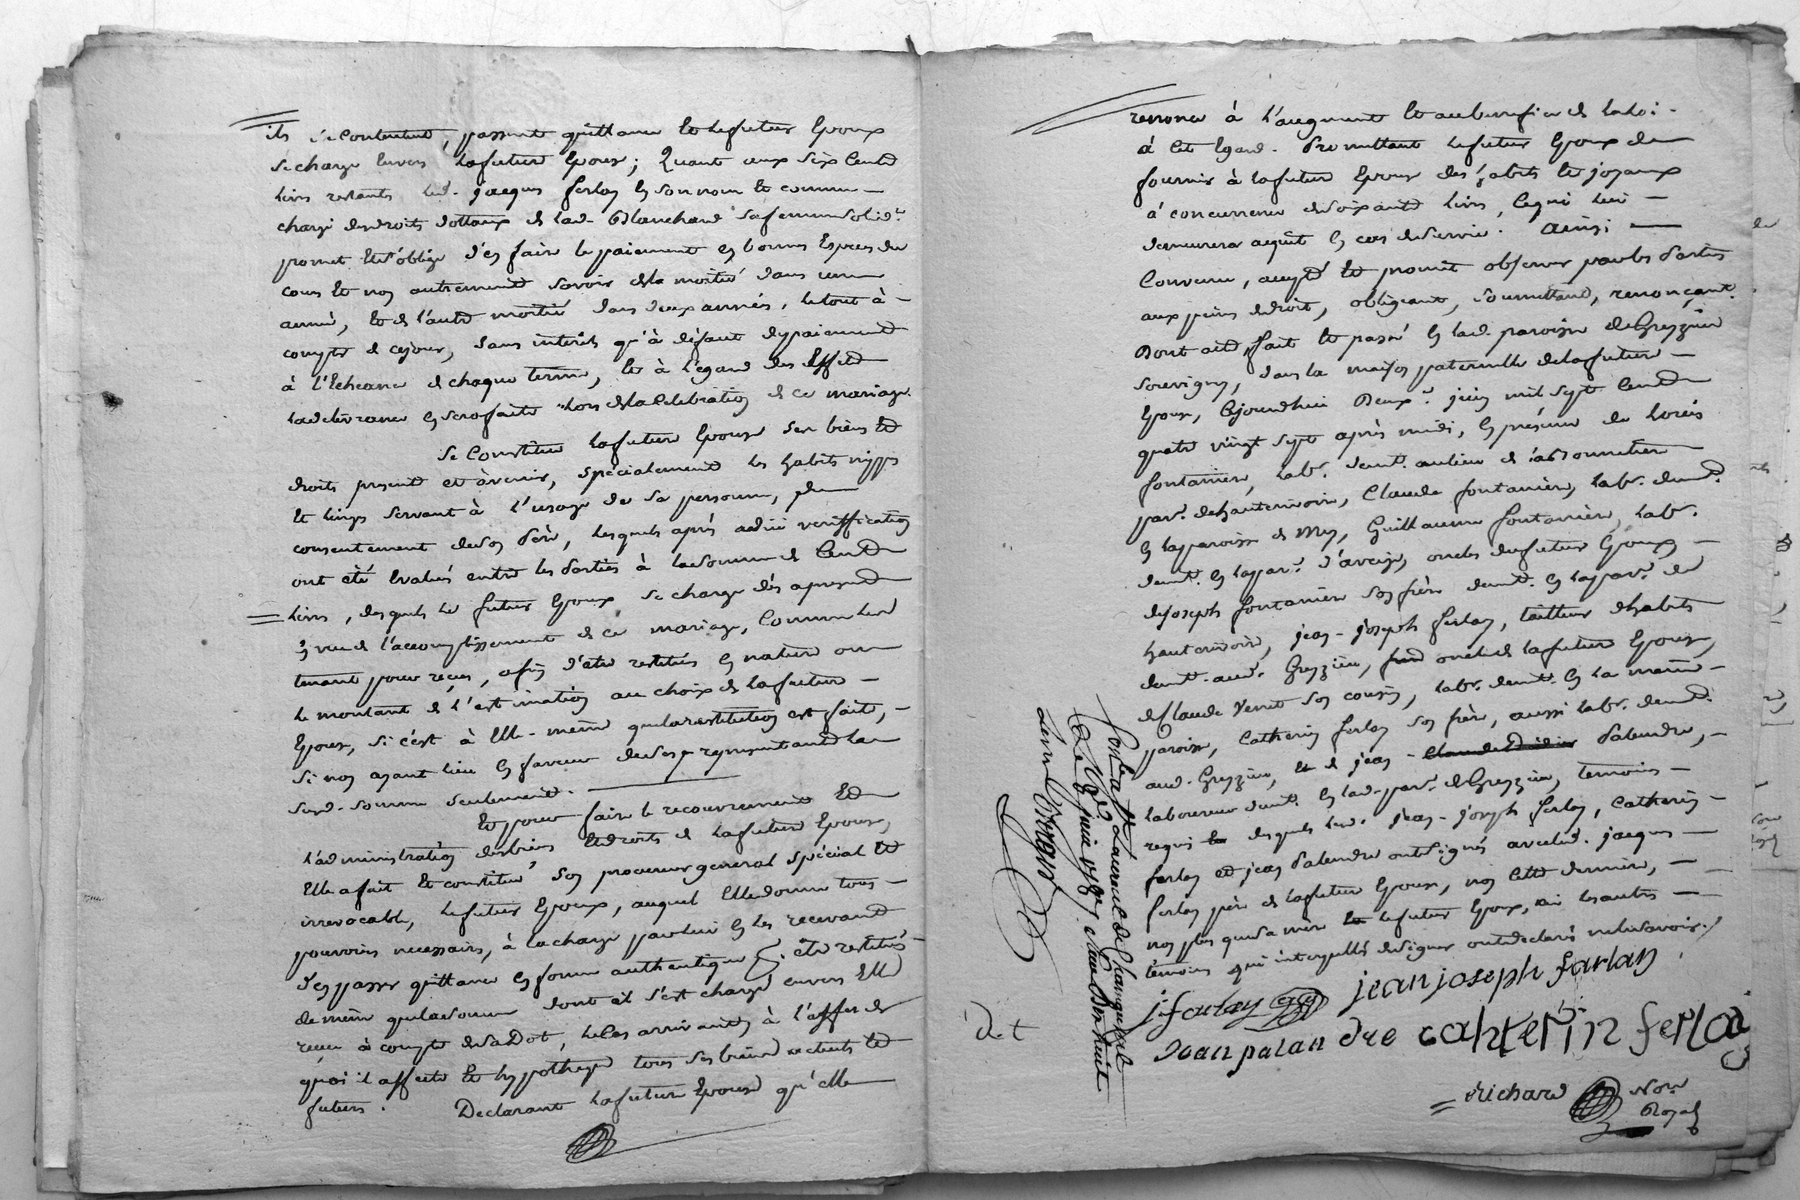 ils se contentent, passent quittance et le futur Epoux
se charge Envers la future Epouse; Quant aux six Cents
livres restants led. jacques ferlay En son nom et comme
chargé des droits dottaux de lad. Blanchard sa femme solid.t
promet et s'oblige d'En faire le paiement En bonnes Espèces du
cours et non autrement savoir de la moitié dans une
année, et de l'autre moitié dans deux années, le tout à
compter de ce jour, sans intérêts qu'à défaut de paiement
à l'Echeance de chaque terme, et à l'égard des Effets
la delivrance En sera faite lors de la Celebration de ce mariage.
Se Constitue la future Epouse ses biens et
droits présents et à venir, spécialement les habits nippes
et linges servant à l'usage de sa personne, du
consentement de son Père, lesquels après due vériffication
ont été Evalués entre les Parties à la somme de Cent
livres, desquels le futur Epoux se charge dès à présent
En vue de l'accomplissement de ce mariage, Comme les
tenant pour reçus, afin d'être restitués En nature ou
le montant de l'estimation au choix de la future
Epouse, si c'est à Elle-même que la restitution est faite,
si non ayant lieu En faveur de ses représentants la
susd. somme seulement.
Et pour faire le recouvrement Et
l'administration des biens Et droits de la future Epouse,
Elle a fait Et constitué son procureur général spécial et
irrevocable, le futur Epoux, auquel Elle donne tous
pouvoirs necessaires, à la charge par lui En les recevant
d'En passer quittance En forme authentique être restitués
de même que la somme dont il s'est chargé envers Elle
reçue à compte de sa Dot, le cas arrivant, à l'effet de
quoi il affecte et hypotheque tous ses biens presents et
futurs. Declarant la future Epouse qu'elle
renonce à l'augment et au benefice de la loi
à cet Egard. Promettant le futur Epoux de
fournir à la future Epouse des habits et joyaux
à concurrence de soixante livres, ce qui lui
demeurera acquit En cas de survie. Ainsi
Convenu, accepté et promis observer par les Parties
aux peines de droit, obligeant, soumettant, renonçant.
Dont acte, fait et passé En lad. paroisse de Grezzieu
souvigny, dans la maison paternelle de la future
Epouse, Cejourdhui Deux.e juin mil sept Cent
quatre vingt sept après midi, En présence de Louis
fontanière, lab.r demt. au lieu de
par. de hauterivoire, Claude fontanière, lab.r demt.
En la paroisse de Mey, Guillaume fontanière, lab.r
demt. En la par. d'aveize, oncles du futur Epoux
de joseph fontanière son frère demt. En la par. de
hauterivoire, jean-joseph ferlay, tailleur d'habits
demt. aud. Grezzieu, oncle de la future Epouse,
de Claude Verne son cousin, lab.r demt. En la même
paroisse, Catherin ferlay son frère, aussi lab.r demt.
aud. Grezzieu, et de jean Palandre,
laboureur demt. En lad. par. de Grezzieu, temoins
requis desquels led. jean-joseph ferlay, Catherin
ferlay et jean Palandre ont signés avec led. jacques
ferlay père de la future Epouse, non cette dernière,
non plus que sa mère le futur Epoux, ni les autres
témoins qui interpellés de signer ont declaré ne le savoir.
j. farlay jean joseph farlay
Jean palan dre cahterin ferlay
Richard Not.re
Royal